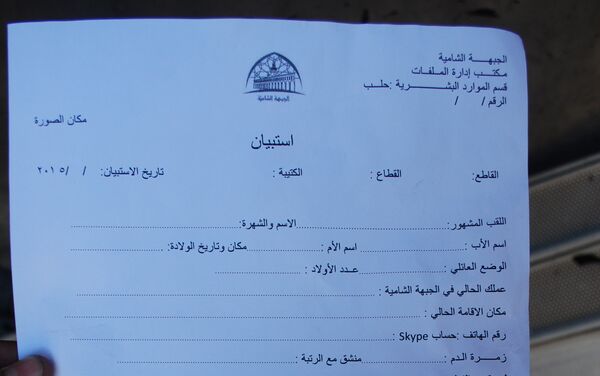 الجبهـــة الشامية
مكتـــب إدارة الملفـات
قسم الموارد البشـــرية :حلب
الرقم / /
الجبهة الشامية
مكان الصورة
استبيان
القاطع: القطاع : الكتيبة : تاريخ الاستبيان: / /٢٠١٥
اللقب المشهور:........................الاسم والشهرة:........................
اسم الأب:........................اسم الأم:........................مكان وتاريخ الولادة:........................
الوضع العائلي :........................عـدد الأولاد :........................
عملك الحالي في الجبهة الشامية :........................
مكان الاقامة الحالي :........................
رقم الهاتف :حساب Skype:........................
زمـــرة الـدم :........................منشق مع الرتبة :........................